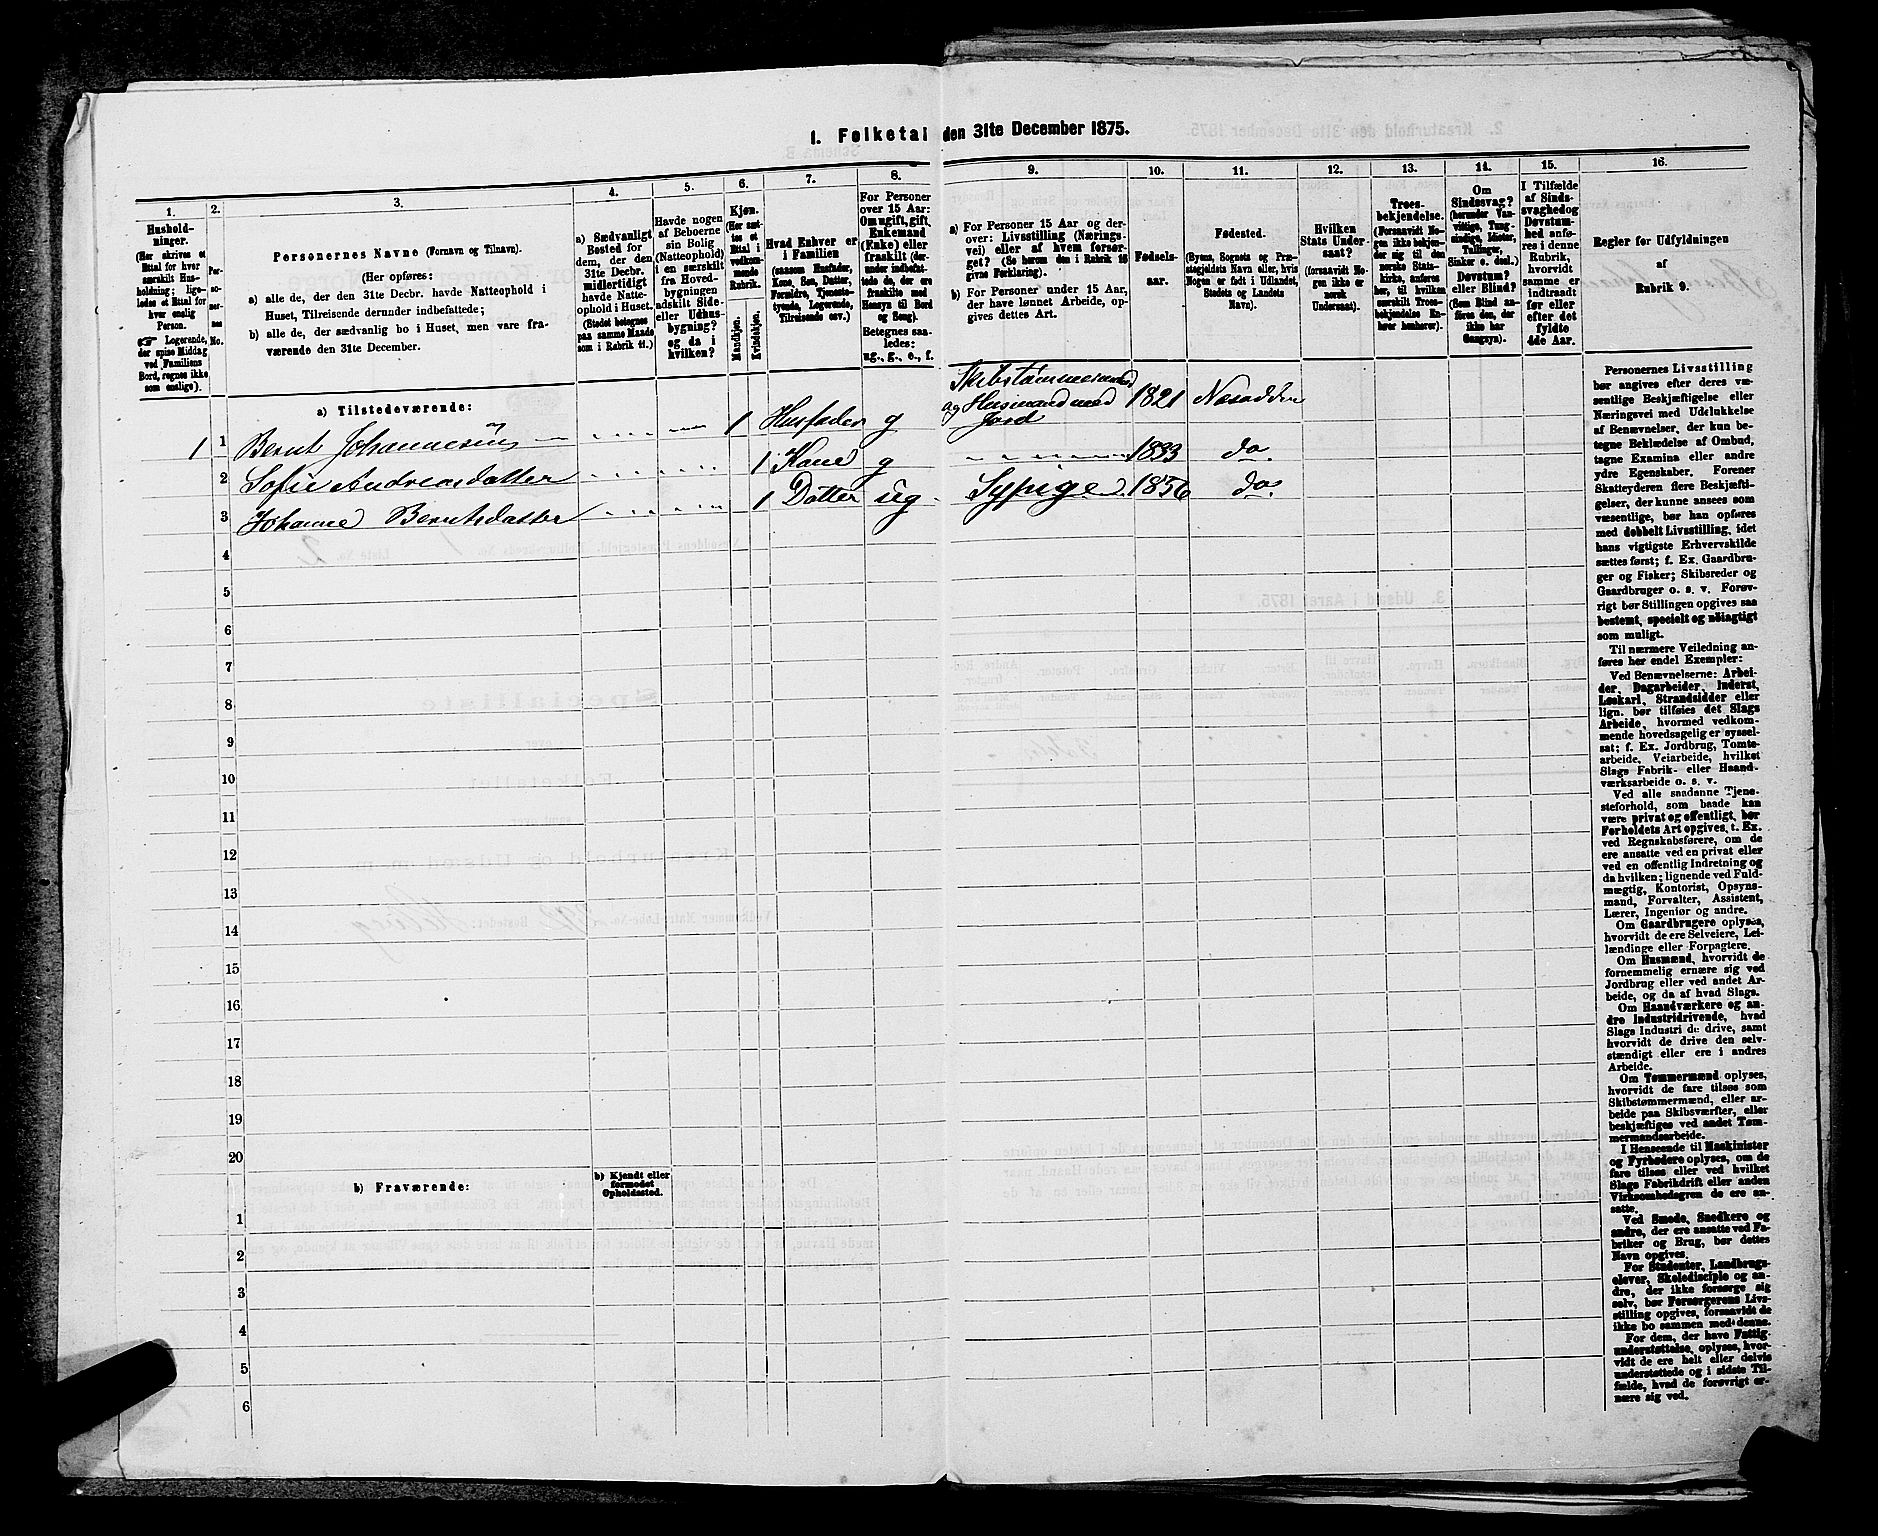 1. Folketal den 31te December 1875.
1.
Hushold-
ninger.
(Her skrives et
Ettal for hver
særskilt Hus-
holdning; lige-
ledes et Ettal for
hver enslig
Person.
Logerende,
der spise Middag
ved Familiens
Bord, regnes ikke
som enslige).
2.
Per-
soner-
nes
No.
3.
Personernes Navne (Fornavn og Tilnavn).
(Her opføres:
a) alle de, der den 31te Decbr. havde Natteophold i
Huset, Tilreisende derunder indbefattede;
b) alle de, der sædvanlig bo i Huset, men vare fra-
værende den 31te December.
4.
a) Sædvanligt
Bosted for
dem, der den
31te Decbr.
midlertidigt
havde Natte-
ophold i Huset.
(Stedet betegnes
paa samme Maade
som i Rubrik 11.)
5.
Havde nogen
af Beboerne
sin Bolig
(Natteophold)
i en særskilt
fra Hoved-
bygningen
adskilt Side-
eller Udhus-
bygning?
og da i
hvilken?
6.
Kjøn.
(Her sæt-
tes et
Ettal i
vedkom-
mende
Rubrik.)
Mandkjøn.
Kvindekjøn.
7.
Hvad Enhver er
i Familien
(saasom Husfader,
Kone, Søn, Datter,
Forældre, Tjeneste-
tyende, Logerende,
Tilreisende osv.)
8.
For Personer
over 15 Aar:
Om ugift, gift,
Enkemand
(Enke) eller
fraskilt (der-
under indbefat-
tede de, der ere
fraskilte med
Hensyn til Bord
og Seng).
Betegnes saa-
ledes:
ug., g., e., f.
9.
a) For Personer 15 Aar og der-
over: Livsstilling (Nærings-
vei) eller af hvem forsør-
get? (Se herom den i Rubrik 16
givne Forklaring).
b) For Personer under 15 Aar,
der have lønnet Arbeide, op-
gives dettes Art.
10.
Fødsels-
aar.
11.
Fødested.
(Byens, Sognets og Præ-
stegjeldets Navn eller, hvis
Nogen er født i Udlandet,
Stedets og Landets
Navn).
12.
Hvilken
Stats Under-
saat?
(forsaavidt No-
gen ikke er
norsk
Undersaat).
13.
Troes-
bekjendelse.
(Forsaavidt No-
gen ikke bekjen-
der sig til den
norske Stats-
kirke, anføres
her, til hvilken
særskilt Troes-
bekjendelse En-
hver henhører).
14.
Om
Sindssvag?
(herunder Van-
vittige, Tung-
sindige, Idioter,
Tullinger,
Sinker o. desl.)
eller Blind?
Døvstum?
(Som Blind an-
føres den, der
ikke har
Gangsyn).
15.
I Tilfælde
af Sinds-
svaghed og
Døvstum-
hed anfø-
res i denne
Rubrik,
hvorvidt
samme er
indtraadt
før eller
efter det
fyldte
4de Aar.
16.
Regler for Udfyldningen
af
Rubrik 9.
a) Tilstedeværende:
1 1 Bernt Johannesen 1 Husfader g Skibstømmermand og Husmand med Jord 1821 Nesodden
2 Sofie Andreasdatter 1 Kone g 1833 do.
3 Johanne Berntsdatter 1 Datter ug Sypige 1856 do.
4
5
6
7
8
9
10
11
12
13
14
15
16
17
18
19
20
b) Fraværende:
b) Kjendt eller
formodet
Opholdssted.
1
2
3
4
5
6
Personernes Livsstilling
bør angives efter deres væ-
sentlige Beskjæftigelse eller
Næringsvei med Udelukkelse
af Benævnelser, der kun be-
tegne Beklædelse af Ombud,
tagne Examina eller andre
ydre Egenskaber. Forener
Skatteyderen flere Beskjæfti-
gelser, der kunne ansees som
væsentlige, bør han opføres
med dobbelt Livsstilling, idet
hans vigtigste Erhvervskilde
sættes først; f. Ex. Gaardbru-
ger og Fisker; Skibsreder og
Gaardbruger o. s. v. Forøv-
rigt bør Stillingen opgives saa
bestemt, specielt og nøiagtigt
som muligt.
Til nærmere Veiledning an-
føres her endel Exempler:
Ved Benævnelserne: Arbei-
der, Dagarbeider, Inderst,
Løskarl, Strandsidder eller
lign. bør tilføies det Slags
Arbeide, hvormed vedkom-
mende hovedsagelig er syssel-
sat; f. Ex. Jordbrug, Tomte-
arbeide, Veiarbeide, hvilket
Slags Fabrik- eller Haand-
værksarbeide o. s. v.
Ved alle saadanne Tjene-
steforhold, som baade kan
være privat og offentligt, bør
Forholdets Art opgives, t. Ex.
ved Regnskabsførere, om de
ere ansatte ved en privat eller
ved en offentlig Indretning og
da hvilken; lignende ved Fuld-
mægtig, Kontorist, Opsyns-
mand, Forvalter, Assistent,
Lærer, Ingeniør og andre.
Om Gaardbrugere oplyses,
hvorvidt de ere Selveiere, Lei-
lændinge eller Forpagtere.
Om Husmænd, hvorvidt de
fornemmelig ernære sig ved
Jordbrug eller ved andet Ar-
beide, og da af hvad Slags.
Om Haandværkere og an-
dre Industridrivende, hvad
Slags Industri de drive, samt
hvorvidt de drive den selv-
stændigt eller ere i andres
Arbeide.
Om Tømmermænd oplyses,
hvorvidt de fare tilsøs som
Skibstømmermænd, eller ar-
beide paa Skibsværfter, eller
beskjæftiges ved andet Tøm-
mermandsarbeide.
I Henseende til Maskinister
og Fyrbødere oplyses, om de
fare tilsøs eller ved hvilket
Slags Fabrikdrift eller anden
Virksomhed de ere an-
satte.
Ved Smede, Snedkere og
andre, der ere ansatte ved Fa-
briker og Brug, bør dettes
Navn opgives.
For Studenter, Landbrugs-
elever, Skoledisciple og an-
dre, der ikke forsørge sig
selv, bør Forsørgerens Livs-
stilling opgives, forsaavidt de
ikke bo sammen med denne.
For dem, der have Fattig-
understøttelse, oplyses, hvor-
vidt de ere helt eller delvis
understøttede og i sidste Til-
fælde, hvad de forøvrigt er-
nære sig ved.